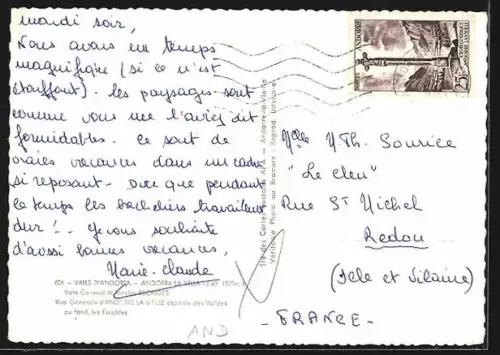 mardi soir,
Nous avons un temps
magnifique (si ce n'est
étouffant) - les paysages sont
comme vous me l'aviez dit
formidables. Ce sont de
vraies vacances dans un cadre
si reposant - Dire que pendant
ce temps les bacheliers travaillent
dur! - Je vous souhaite
d'aussi bonnes vacances,
Marie-Claude
VALLS D'ANDORRA - ANDORRA LA VELLA
Vista General
Vue Générale d'ANDORRE LA VIEILLE capitale des Vallées
au fond, les Escaldes
AND
Andorre-la-Vieille
Véritable Photo au Bromure - Reprod. interdite
POSTES ANDORRE
25
Mlle M. Th. Sourice
"Le Cleu"
Rue St Michel
Redon
(Ille et Vilaine)
- FRANCE -